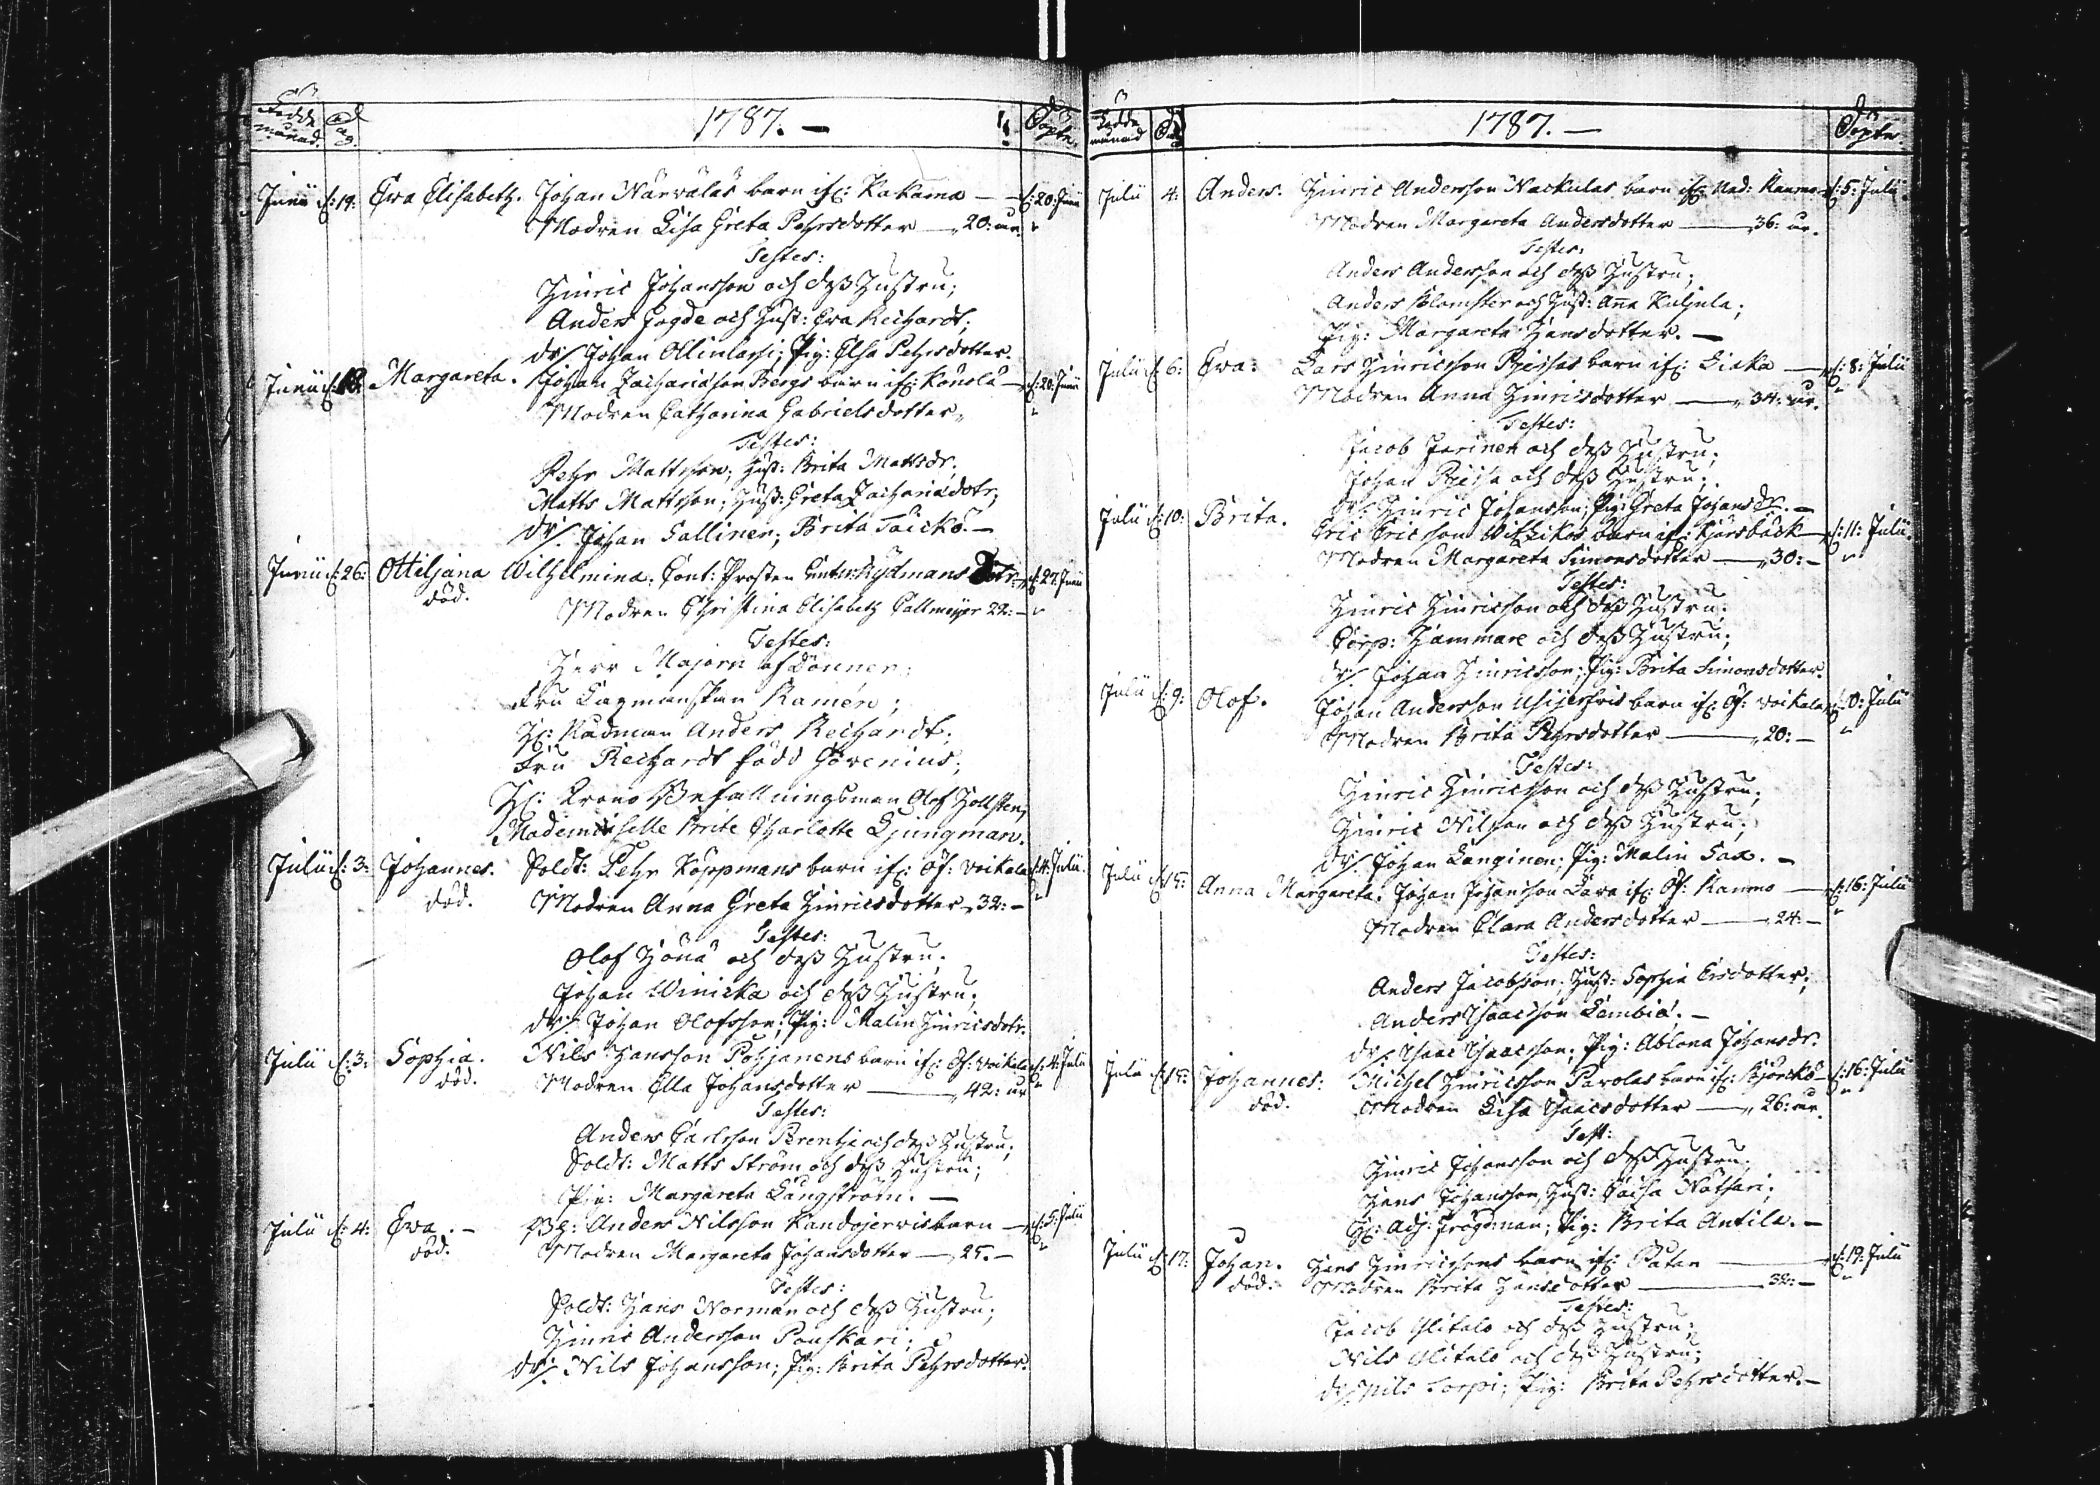 Födde månad. Dag. 1787. — Döpte
Junii d: 19: Ewa Elisabeth. Johan Närwäläs barn ifr: Kakama — d: 20: Junii
Modren Lisa Greta Pehrsdotter — 20: år.
Testes:
Hinric Johansson och dess Hustru;
Anders Fogde och Hust: Ewa Reichardt;
dr/ Johan Ollinlassi; Pig: Elsa Pehrsdotter.
Junii d: 18: Margareta. Johan Zachariasson Bergs barn ifr: Konola — d: 20: Junii
Modren Catharina Gabrielsdotter
Testes:
Pehr Mattsson; Hust: Brita Mattsdr.
Matts Mattsson; Hust: Greta Zachariædotr;
dr/. Johan Sallinen; Brita Taicko. —
Junii d: 26: Ottiljana Wilhelmina. Cont: Prosten Rydmans Dotr. d: 27: Junii
död. Modren Christina Elisabeth Callmeyer 22: —
Testes:
Herr Majorn af Donner;
Fru Lagmanskan Ramén;
H: Rådman Anders Reichardt;
Fru Reichardt född Gövenius;
H: Krono Befallningsman Olof Hollsten;
Mademoiselle Brite Charlotte Ljungman.
Julii d: 3: Johannes. Soldt: Pehr Koppmans barn ifr: Öf: Voikala d: 4: Julii
död. Modren Anna Greta Hinricsdotter 32: —
Testes:
Olof Houä och dess Hustru;
Johan Winicka och dess Hustru;
dr/: Johan Olofsson; Pig: Malin Hinricsdotr.
Julii d: 3: Sophia. Nils Hansson Pohjanens barn ifr: Öf: Voikala d: 4: Julii
död. Modren Ella Johansdotter — 42: år
Testes:
Anders Carlsson Perentje och dess Hustru;
Soldt: Matts Ström och dess Hustru;
Pig: Margareta Långström. —
Julii d: 4: Ewa. — Anders Nilsson Kandojerwis barn — d: 5: Julii
död. Modren Margareta Johansdotter — 25. —
Testes:
Soldt: Hans Norman och dess Hustru;
Hinric Andersson Pouskari;
dr/. Nils Johansson; Pig: Brita Pehrsdotter.
Födde månad Dag 1787. — Döpte
Julii 4: Anders. Hinric Andersson Nackulas barn ifr: Ned: Raumo d: 5: Julii.
Modren Margareta Andersdotter — 36: år.
Testes:
Anders Andersson och dess Hustru;
Anders Blomster och Hust: Anna Kuljula;
Pig: Margareta Hansdotter. —
Julii d: 6: Ewa: Lars Hinricsson Pjessas barn ifr: Liaka — d: 8: Julii
Modren Anna Hinricsdotter — 34: år.
Testes:
Jacob Jarinen och dess Hustru;
Johan Pjessa och dess Hustru;
dr/ Hinric Johansson; Pig: Greta Johansdr. —
Julii d: 10: Brita. Eric Ericsson Withikos barn ifr: Kjärsbäck d: 11: Julii.
Modren Margareta Simonsdotter — 30: —
Testes:
Hinric Hinricsson och dess Hustru;
Corp: Hammare och dess Hustru;
dr/. Johan Hinricsson; Pig: Brita Simonsdotter.
Julii d: 9: Olof. Johan Andersson barn ifr: Öf: Voikala d: 10: Julii
Modren Brita Pehrsdotter — 20: —
Testes:
Hinric Hinricsson och dess Hustru;
Hinric Nilsson och dess Hustru;
dr/. Johan Langinen; Pig: Malin Sax. —
Julii d: 15: Anna Margareta. Johan Johansson Lava ifr: Öf: Raumo — d: 16: Julii
Modren Clara Andersdotter — 24: —
Testes:
Anders Jacobsson; Hust: Sophia Ersdotter;
Anders Isaacsson Lambia. —
dr/: Isaac Isaacsson; Pig: Ablona Johansdr.
Julii d: 15: Johannes: Michel Hinricsson Parolas barn ifr: Björckö — d: 16: Julii
död. Modren Lisa Isaacsdotter — 26: år.
Test:
Hinric Johansson och dess Hustru;
Hans Johansson, Hust: Caisa Nåthari;
H: Adj: Frögdman; Pig: Brita Antila. —
Julii d: 17: Johan. Hans Hinricssons barn ifr: Patan — d: 19: Julii
död. Modren Brita Hansdotter — 32: —
Testes:
Jacob Ylitalo och dess Hustru;
Nils Ylitalo och dess Hustru;
dr/ Nils Torpi; Pig: Brita Pehrsdotter. —